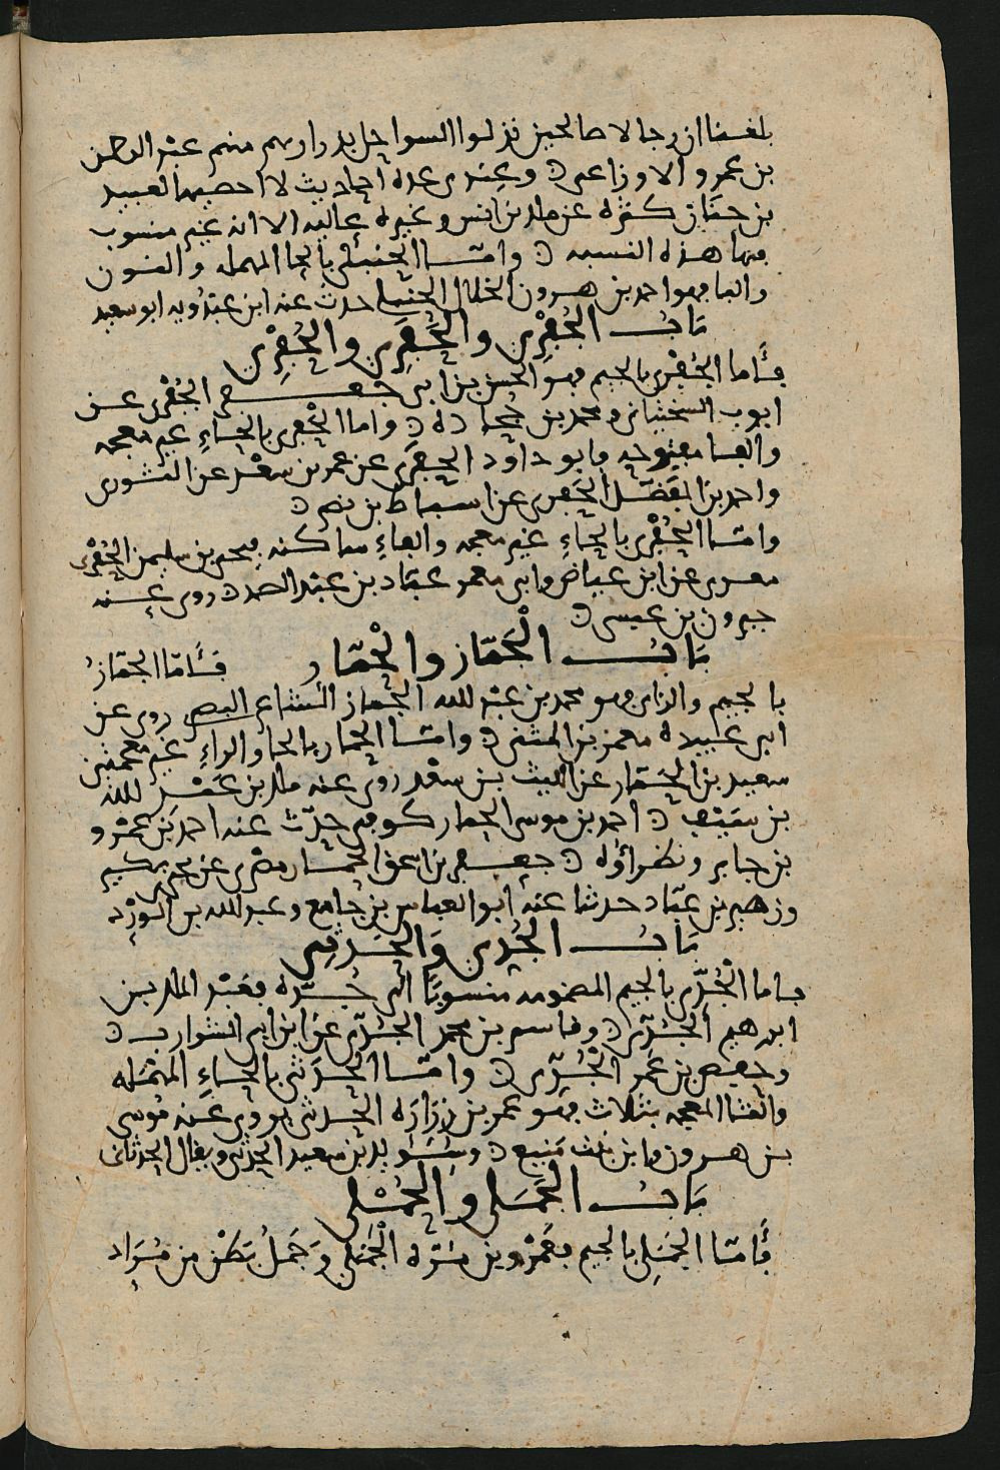 بلغنا ان رجالا صالحين نزلوا السواحل بذراريهم منهم عبد الرحمن
بن عمرو الاوزاعي وعندي عدة احاديث لا احصيها لعبيد
بن حبان كثيرة عن ملك بن انس وغيره عالية الا انه غير منسوب
فيها هذه النسبة واما الحنبلي بالحا المهملة والنون
والبا فهو احمد بن هرون الخلال الحنبلي حدث عنه ابن عبدويه ابو سعيد
باب الجُفْرِي والحَفَرِي والحُفْرِي
فأما الجفري بالجيم فهو الحسن بن ابي جعفر الجفري عن
ايوب السختياني ومحمد بن جحادة واما الحفري بالحاء غير معجمة
والفا مفتوحة فابو داود الحفري عن عمر بن سعد عن الثوري
واحمد بن المفضل الحفري عن اسباط بن نصر
واما الحُفْري بالحاء غير معجمة والفاء ساكنة فيحيى بن سليمن الحفري
مغربي عن ابن عياض وابي معمر عباد بن عبد الصمد روى عنه
جبرون بن عيسى
باب الجمّاز والحمّار فأمّا الجمّاز
بالجيم والزاي فهو محمد بن عبد الله الجماز الشاعر البصري روى عن
ابي عبيدة معمر بن المثنى واما الحمار بالحا والراء غير معجمتين
سعيد بن الحمار عن الليث بن سعد روى عنه ملك بن عبد الله
بن سيف احمد بن موسى الحمار كوفي حدث عنه احمد بن عمرو
بن جابر ونظراؤه جعفر بن اسحق الحمار مصري عن يحيى بن بكير
وزهير بن عباد حدثنا عنه ابو العباس بن جامع وعبد الله بن الورد
باب الجُدي والحَدثي
فاما الجُدّي بالجيم المضمومة منسوبا الى جُدّة فعبد الملك بن
ابرهيم الجُدّي وقاسم بن محمد الجُدّي عن ابن ابي الشوارب
وحفص بن عمر الجُدّي واما الحدثي بالحاء المهملة
والثا المعجمة بثلاث فهو عمر بن زرارة الحدثي يروي عنه موسى
بن هرون وابن بنت منيع وسُوَيد بن سعيد الحدثي ويقال الحدثاني
باب الجَمَلي والحُمْلي
فأمّا الجَمَلي بالجيم فعَمْرو بن مُرّة الجملي وجَمَل بَطْن من مُرَاد